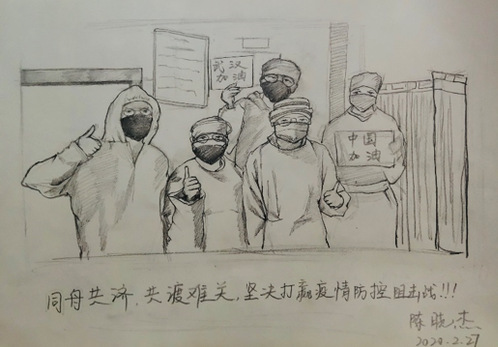 武汉
加油
中国
加油
同舟共济，共渡难关，坚决打赢疫情防控阻击战!!!
陈晓杰
2020.2.27